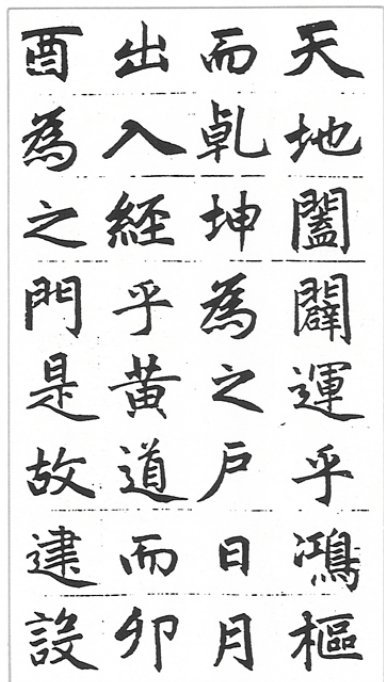 天地闔闢運乎鴻樞
而乹坤為之户日月
出入經乎黄道而卯
酉為之門是故建設